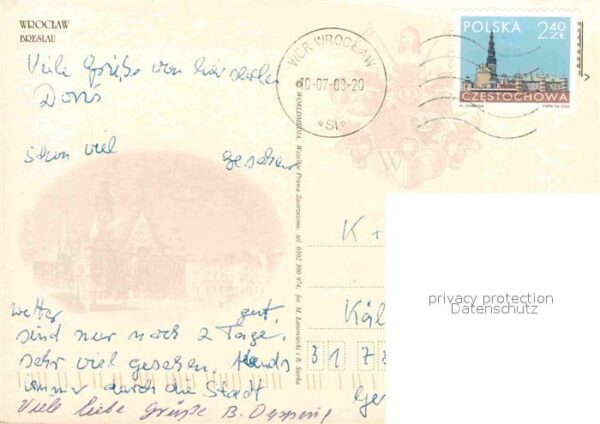 WROCŁAW
BRESLAU
Viele Grüße von
Doris
Schon viel gesehen
Wetter gut.
sind nur noch 2 Tage.
sehr viel gesehen.
immer durch die Stadt
Viele liebe Grüße B.
WORLDMEDIA Wrocław Prawa Zastrzeżone, tel. 0502 300 974; fot. M. Łanowiecki i R. Sierka
WER WROCŁAW
10-07-08-20
*SI*
POLSKA
2,40
ZŁ
CZĘSTOCHOWA
K
Käl
3172
Ge
privacy protection
Datenschutz